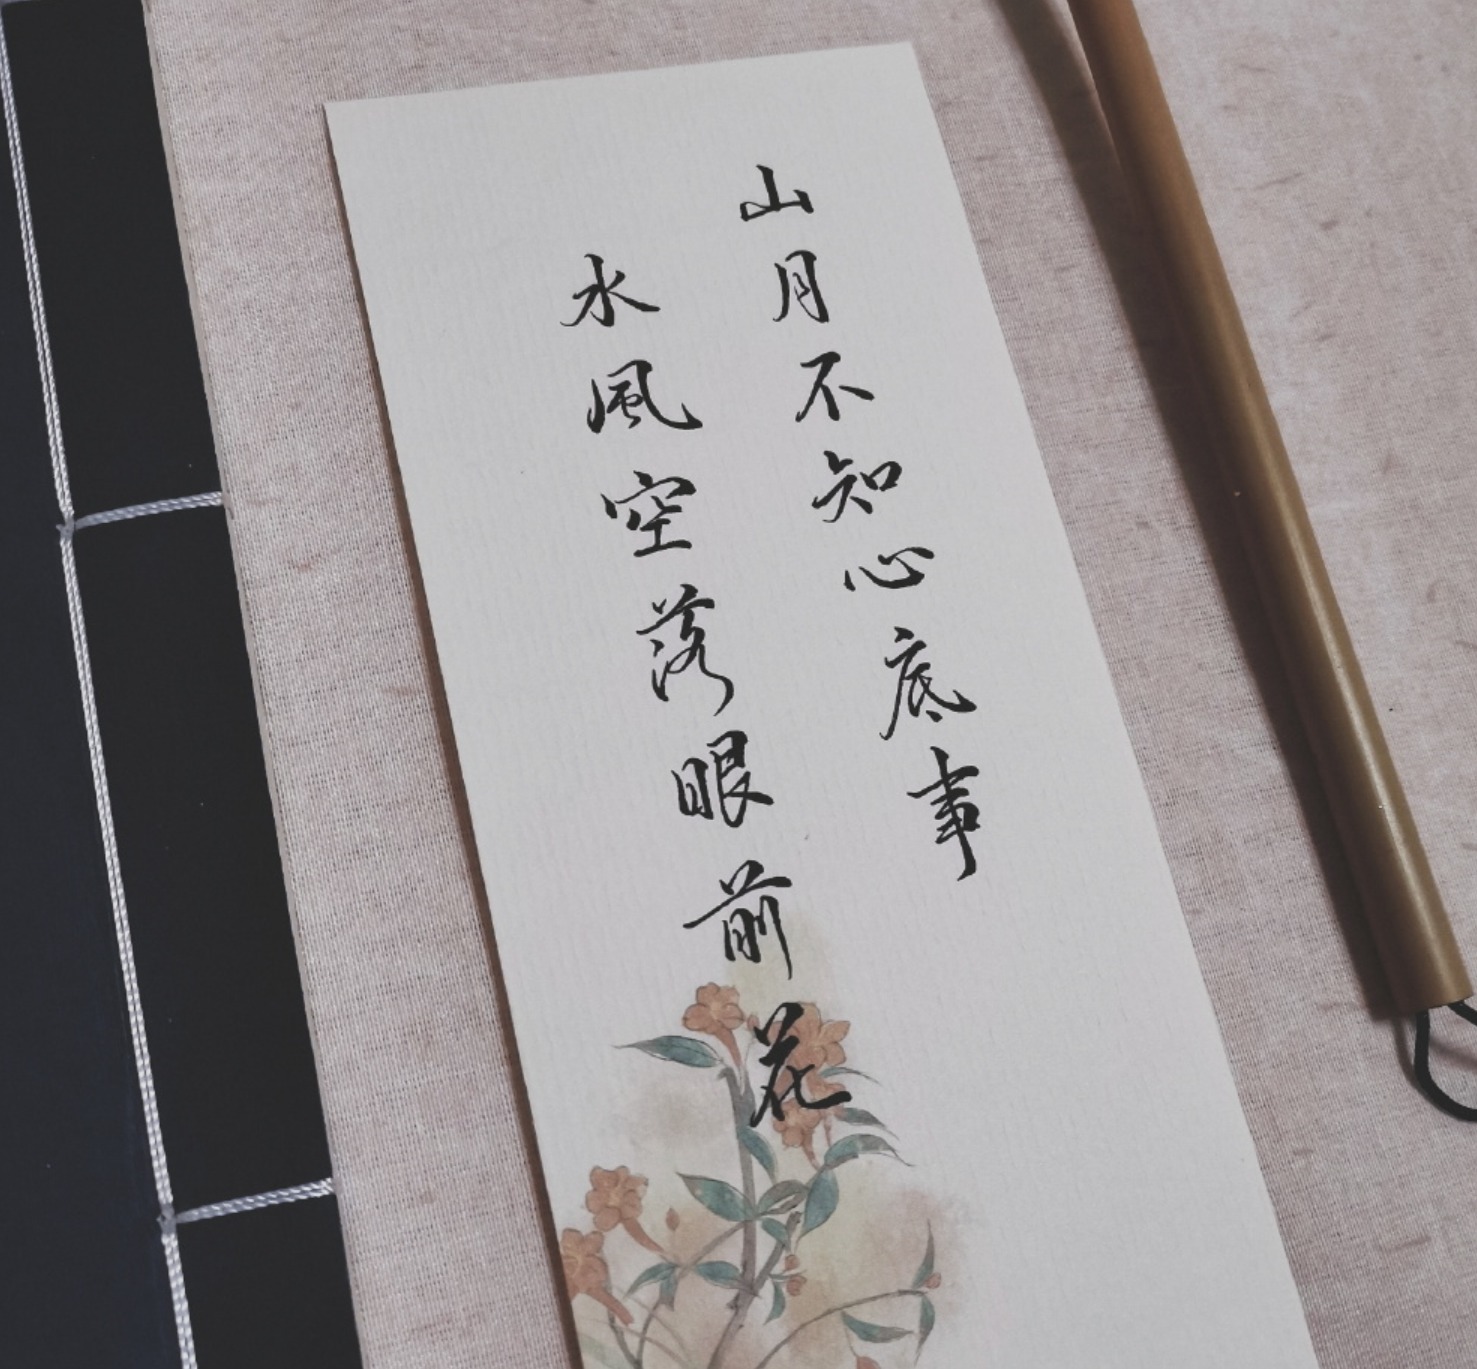 山月不知心底事
水風空落眼前花